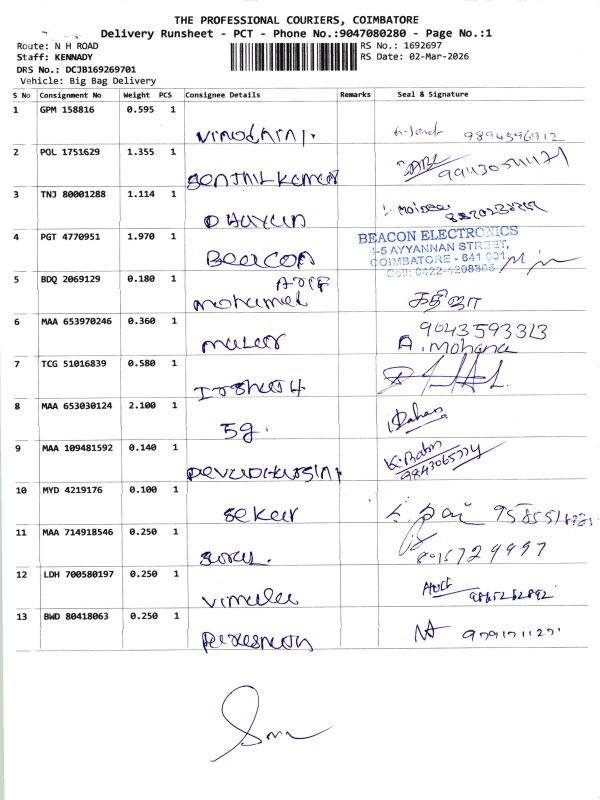 THE PROFESSIONAL COURIERS, COIMBATORE
Delivery Runsheet - PCT - Phone No.:9047080280 - Page No.:1
Route: N H ROAD RS No.: 1692697
Staff: KENNADY RS Date: 02-Mar-2026
DRS No.: DCJB169269701
Vehicle: Big Bag Delivery
S No Consignment No Weight PCS Consignee Details Remarks Seal & Signature
1 GPM 158816 0.595 1
vinothini. 9894396912
2 POL 1751629 1.355 1
Senthilkumar
3 TNJ 80001288 1.114 1
Dhayan
4 PGT 4770951 1.970 1
Beacon
BEACON ELECTRONICS
4-5 AYYANNAN STREET,
COIMBATORE - 641 001
Cell: 0422-4208305
5 BDQ 2069129 0.180 1
Asif
mohamed கதிஜா
6 MAA 653970246 0.360 1
9043593313
malar A. Mohana
7 TCG 51016839 0.580 1
8 MAA 653030124 2.100 1
5g.
9 MAA 109481592 0.140 1
K. Babu
9843065774
10 MYD 4219176 0.100 1
Sekar
11 MAA 714918546 0.250 1
12 LDH 700580197 0.250 1
vimala
13 BWD 80418063 0.250 1